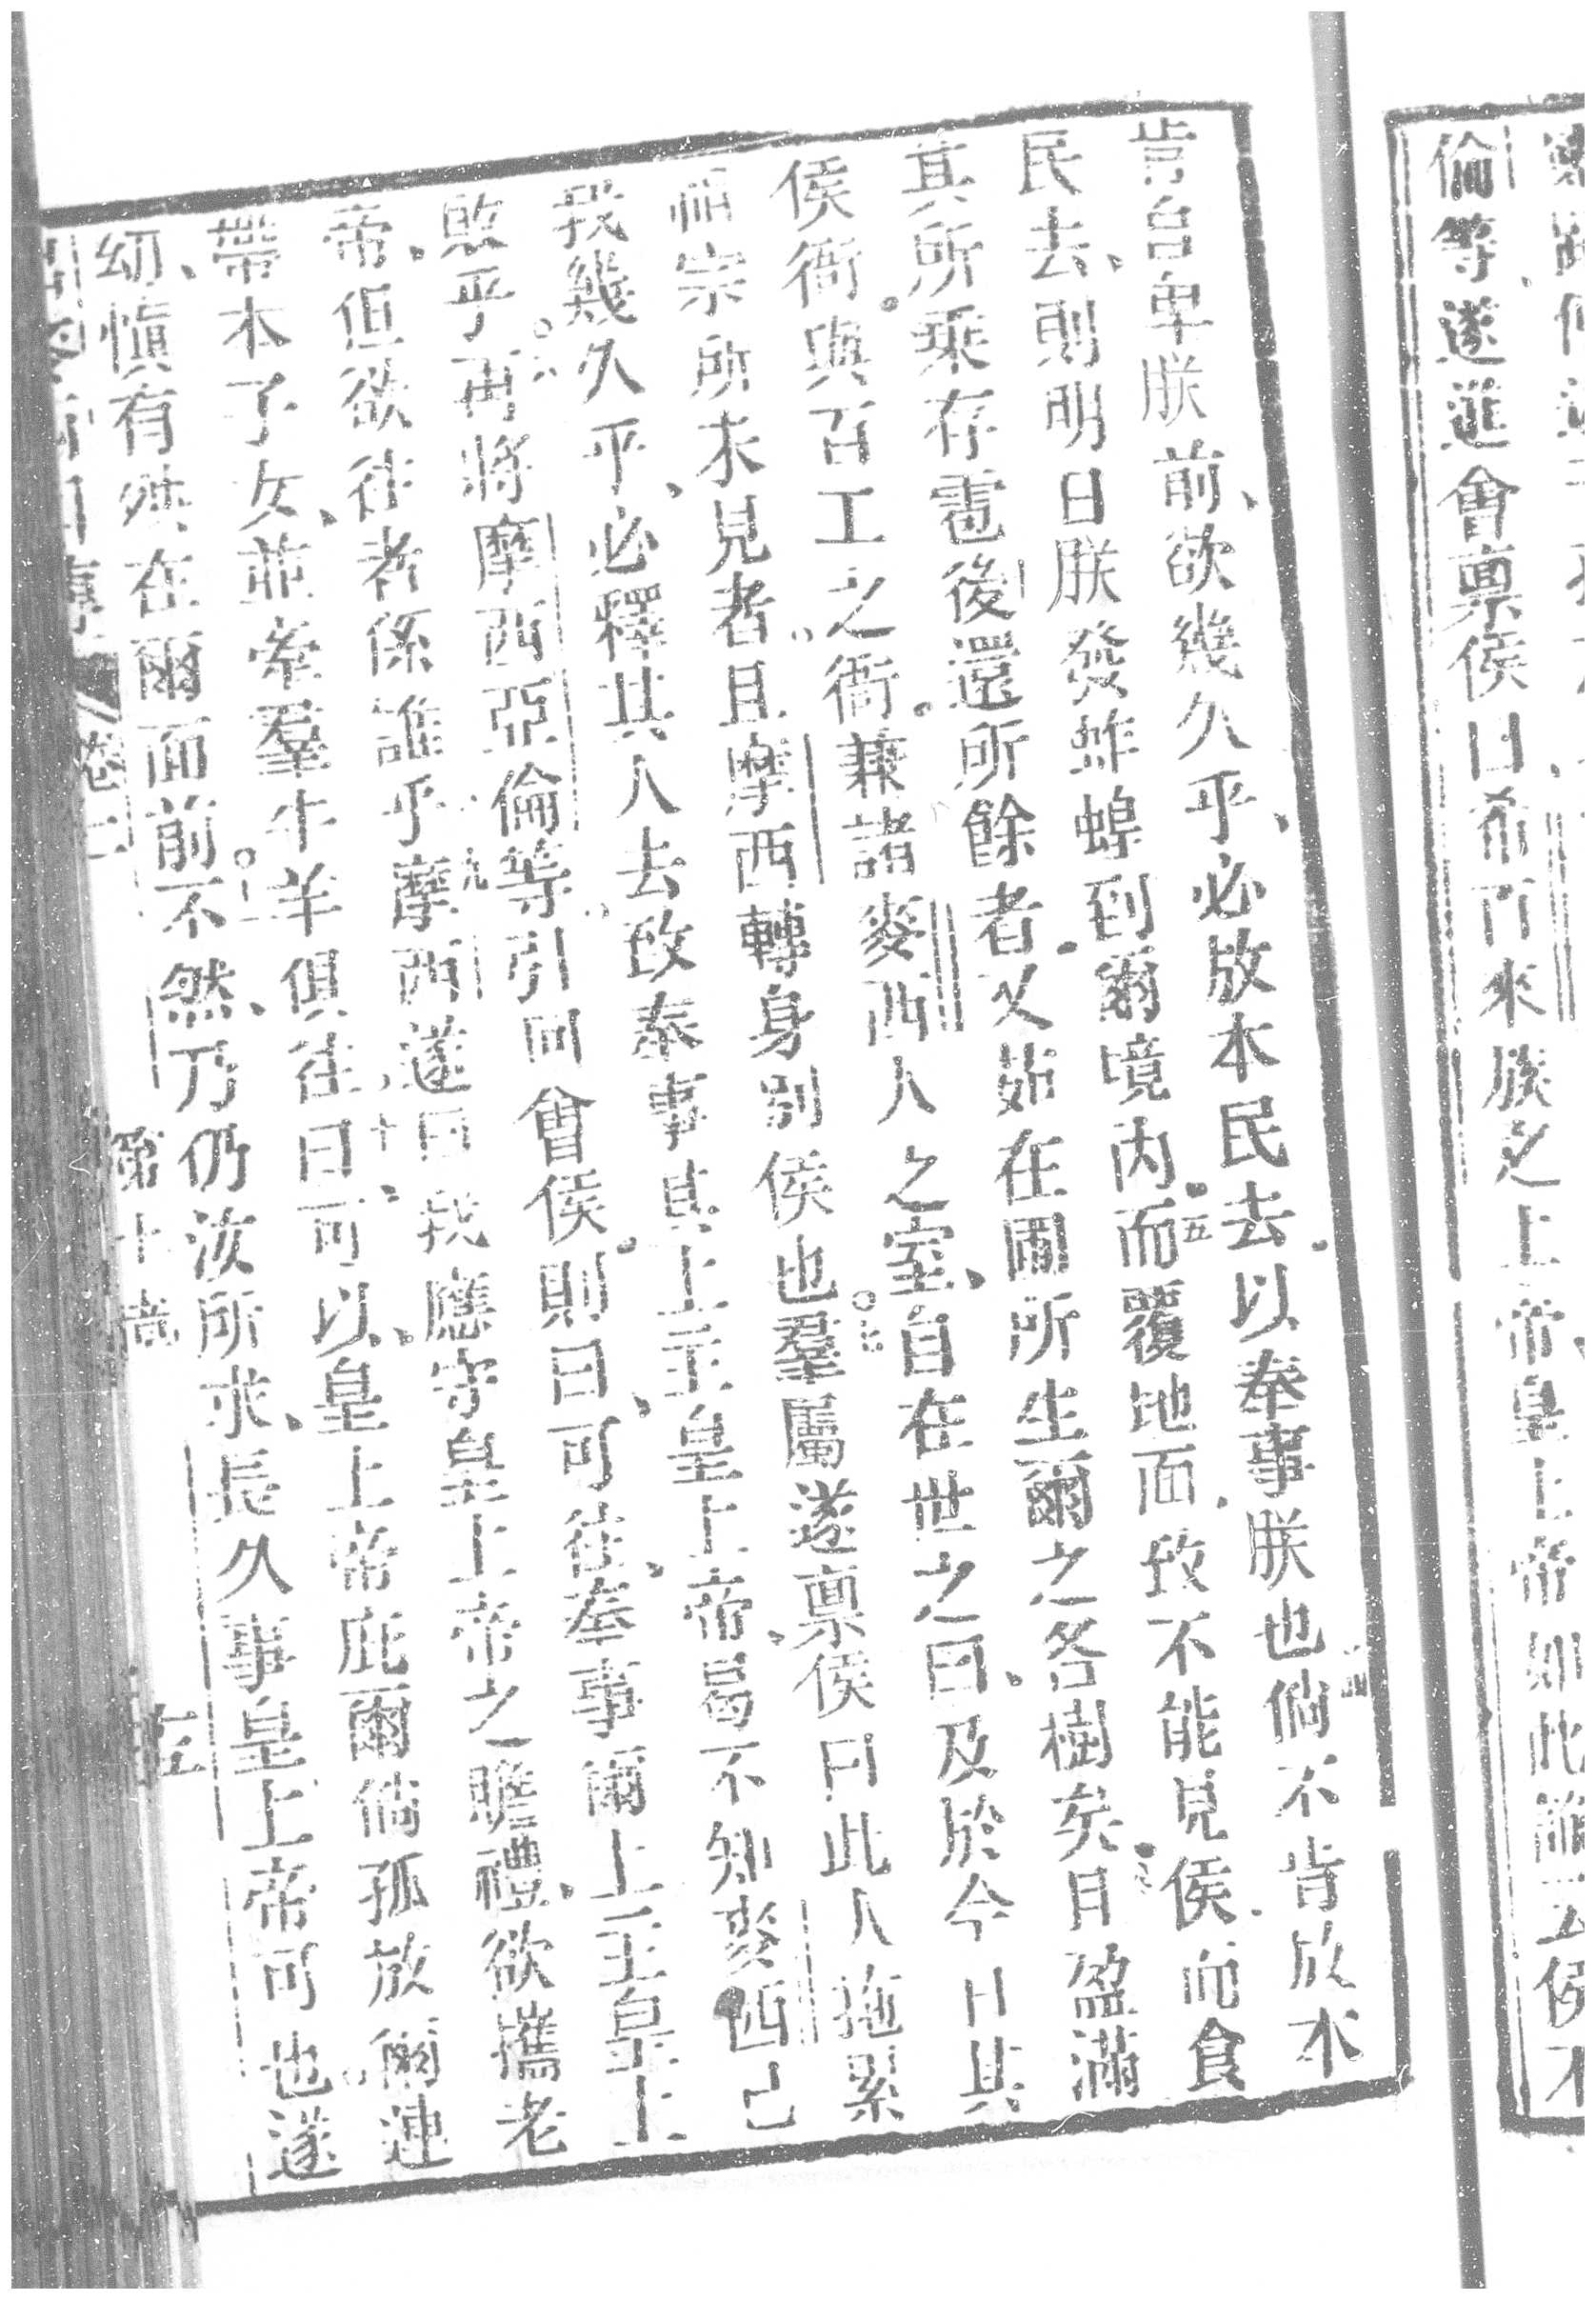 倫等、遂進會禀侯曰希百來族之上帝、皇上帝如此諭云侯不
肯自卑朕前、欲幾久乎、必放本民去。以奉事朕也四倘不肯放本
民去、則明日朕發蚱蜢到爾境內。五而覆地面、致不能見侯、而食
其所乘存雹後還所餘者。又茹在圃所生爾之各樹矣。六且盈滿
侯衙。與百工之衙。兼諸麥西人之室、自在世之日、及於今日其
祖宗所未見者。且摩西轉身別侯也。○七羣屬遂禀侯曰此人拖累
我幾久乎、必釋其人去致奉事其上主皇上帝、曷不知麥西已
敗乎。○八再將摩西亞倫等引回會侯。則曰、可往、奉事爾上主皇上
帝、但欲往者係誰乎、九摩西遂曰我應守皇上帝之瞻禮、欲攜老
幼、帶本子女、並牽羣牛羊俱往、十曰可以、皇上帝庇爾倘孤放爾連
幼、愼有殃在爾面前。○十一不然、乃仍汝所求、長久事皇上帝可也遂
卷二
第十章